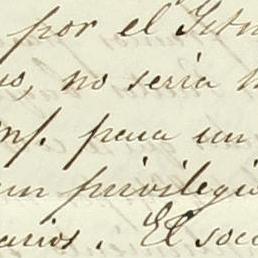 por el Istm
no, no seria
mp. para un
un privilegi
arios. El soc